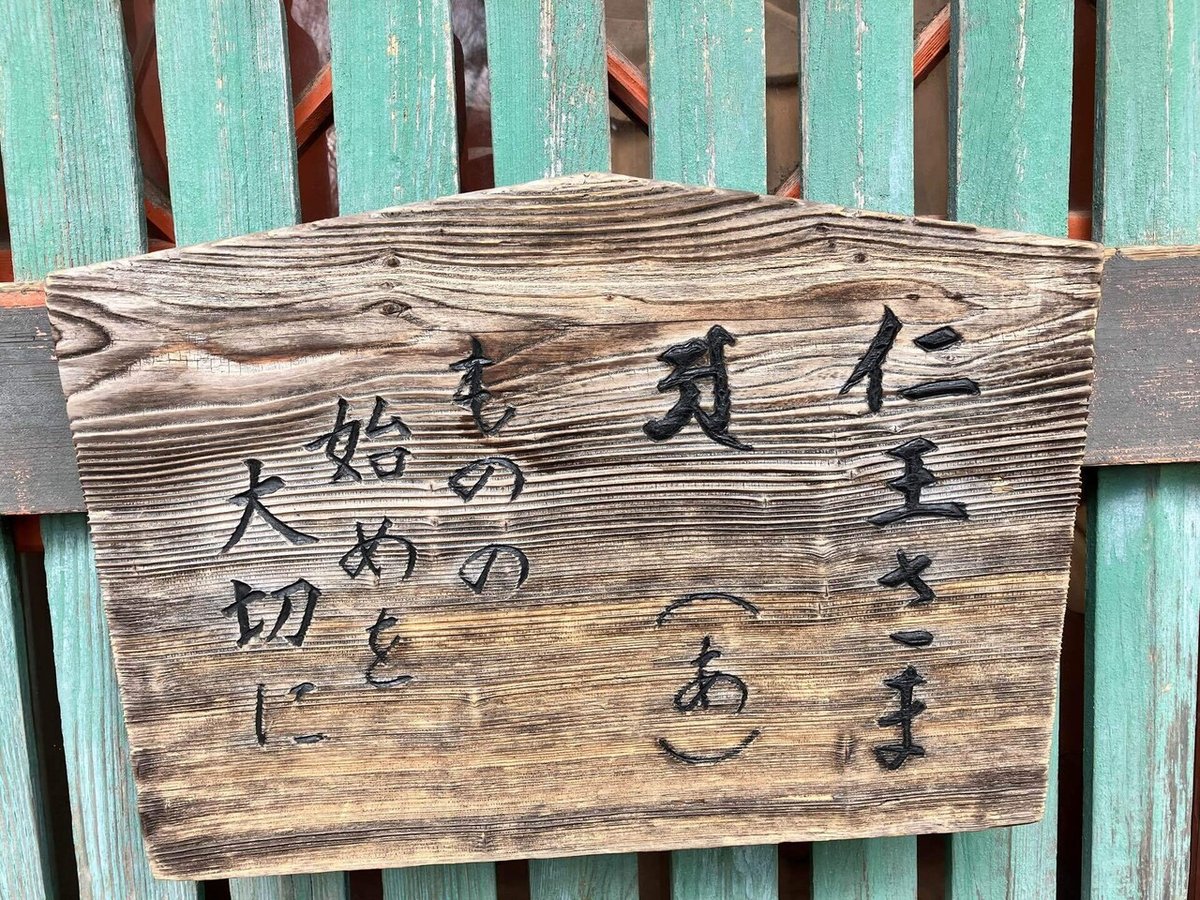 仁王さま
𑖀 (あ)
ものの
始めを
大切に